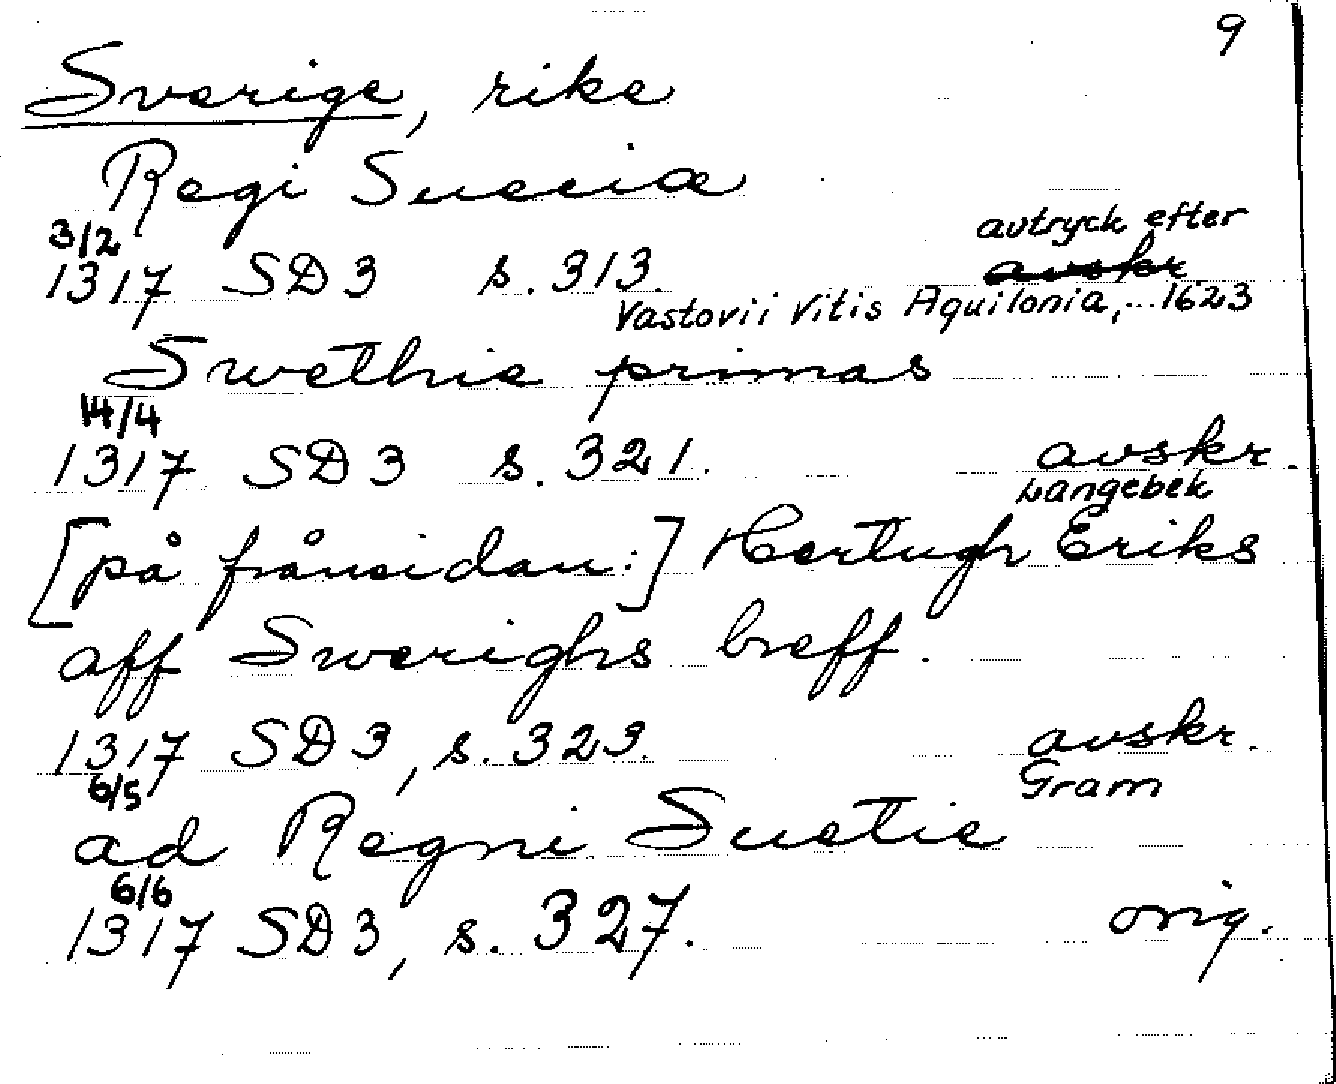 9
Sverige, rike
Regi Sueciæ
3/2 avtryck efter
1317 SD3 s. 313. avskr
Vastovii Vitis Aquilonia, ... 1623
Swethie primas
14/4
1317 SD3 s. 321. avskr.
Langebek
[på frånsidan:] Hertugh Eriks
aff Swerighs breff.
1317 SD3, s. 323. avskr.
6/5 Gram
ad Regni Suetie
6/6
1317 SD3, s. 327. orig.